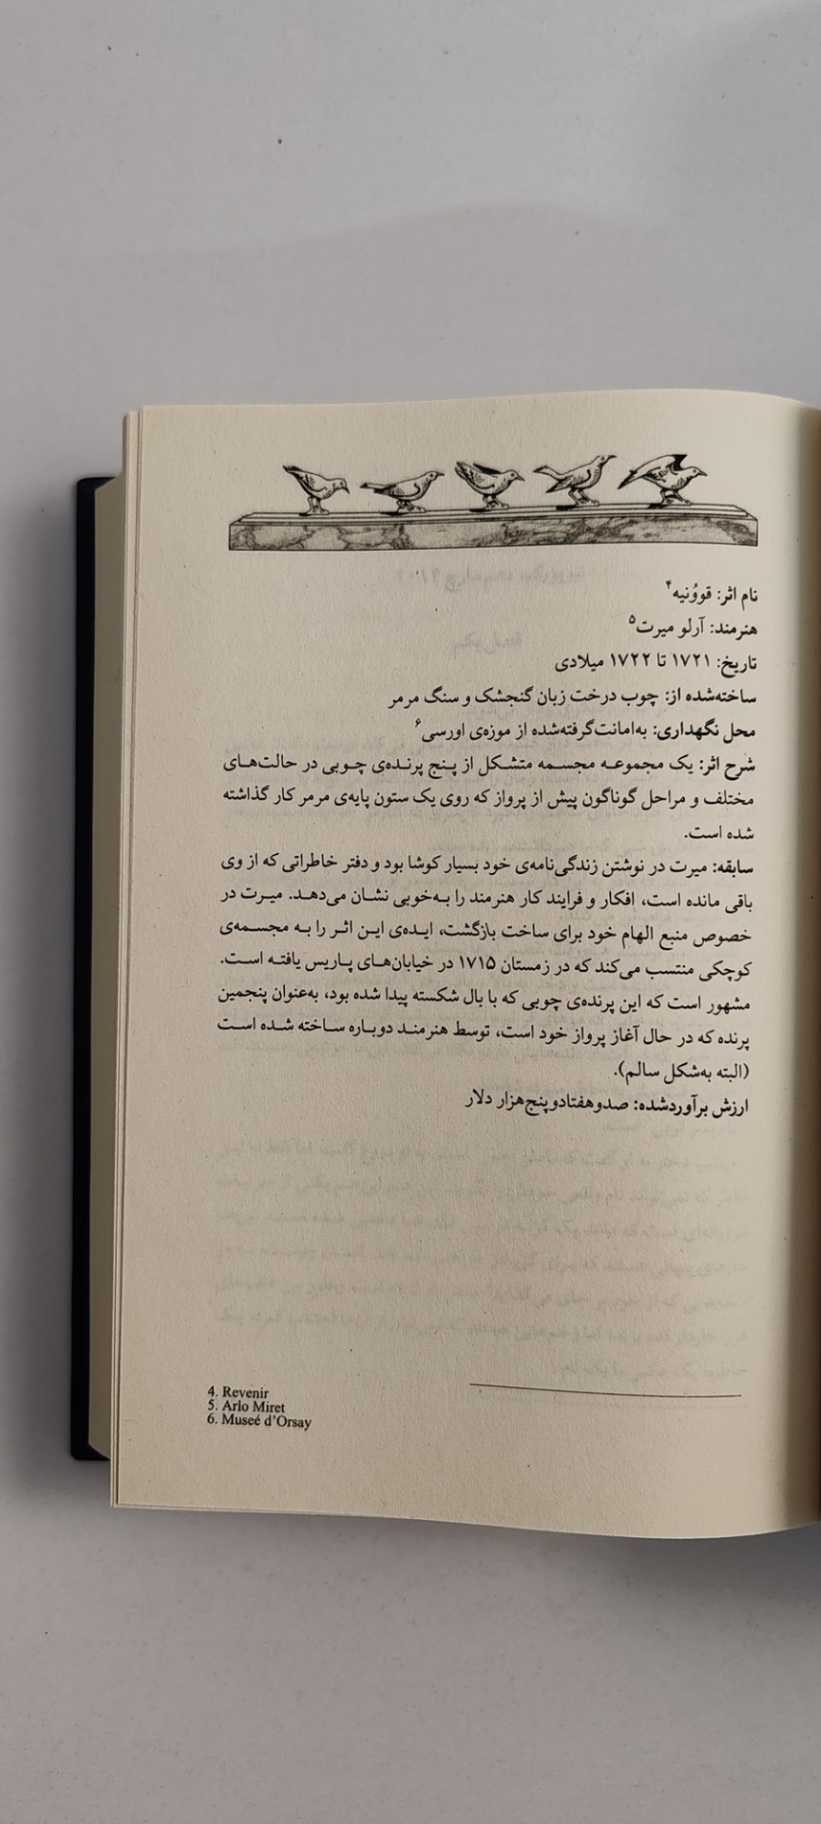 نام اثر: قووُنیه۴
هنرمند: آرلو میرت۵
تاریخ: ۱۷۲۱ تا ۱۷۲۲ میلادی
ساخته‌شده از: چوب درخت زبان گنجشک و سنگ مرمر
محل نگهداری: به‌امانت‌گرفته‌شده از موزه‌ی اورسی۶
شرح اثر: یک مجموعه مجسمه متشکل از پنج پرنده‌ی چوبی در حالت‌های
مختلف و مراحل گوناگون پیش از پرواز که روی یک ستون پایه‌ی مرمر کار گذاشته
شده است.
سابقه: میرت در نوشتن زندگی‌نامه‌ی خود بسیار کوشا بود و دفتر خاطراتی که از وی
باقی مانده است، افکار و فرایند کار هنرمند را به‌خوبی نشان می‌دهد. میرت در
خصوص منبع الهام خود برای ساخت بازگشت، ایده‌ی این اثر را به مجسمه‌ی
کوچکی منتسب می‌کند که در زمستان ۱۷۱۵ در خیابان‌های پاریس یافته است.
مشهور است که این پرنده‌ی چوبی که با بال شکسته پیدا شده بود، به‌عنوان پنجمین
پرنده که در حال آغاز پرواز خود است، توسط هنرمند دوباره ساخته شده است
(البته به‌شکل سالم).
ارزش برآوردشده: صدوهفتادوپنج‌هزار دلار
4. Revenir
5. Arlo Miret
6. Museé d'Orsay